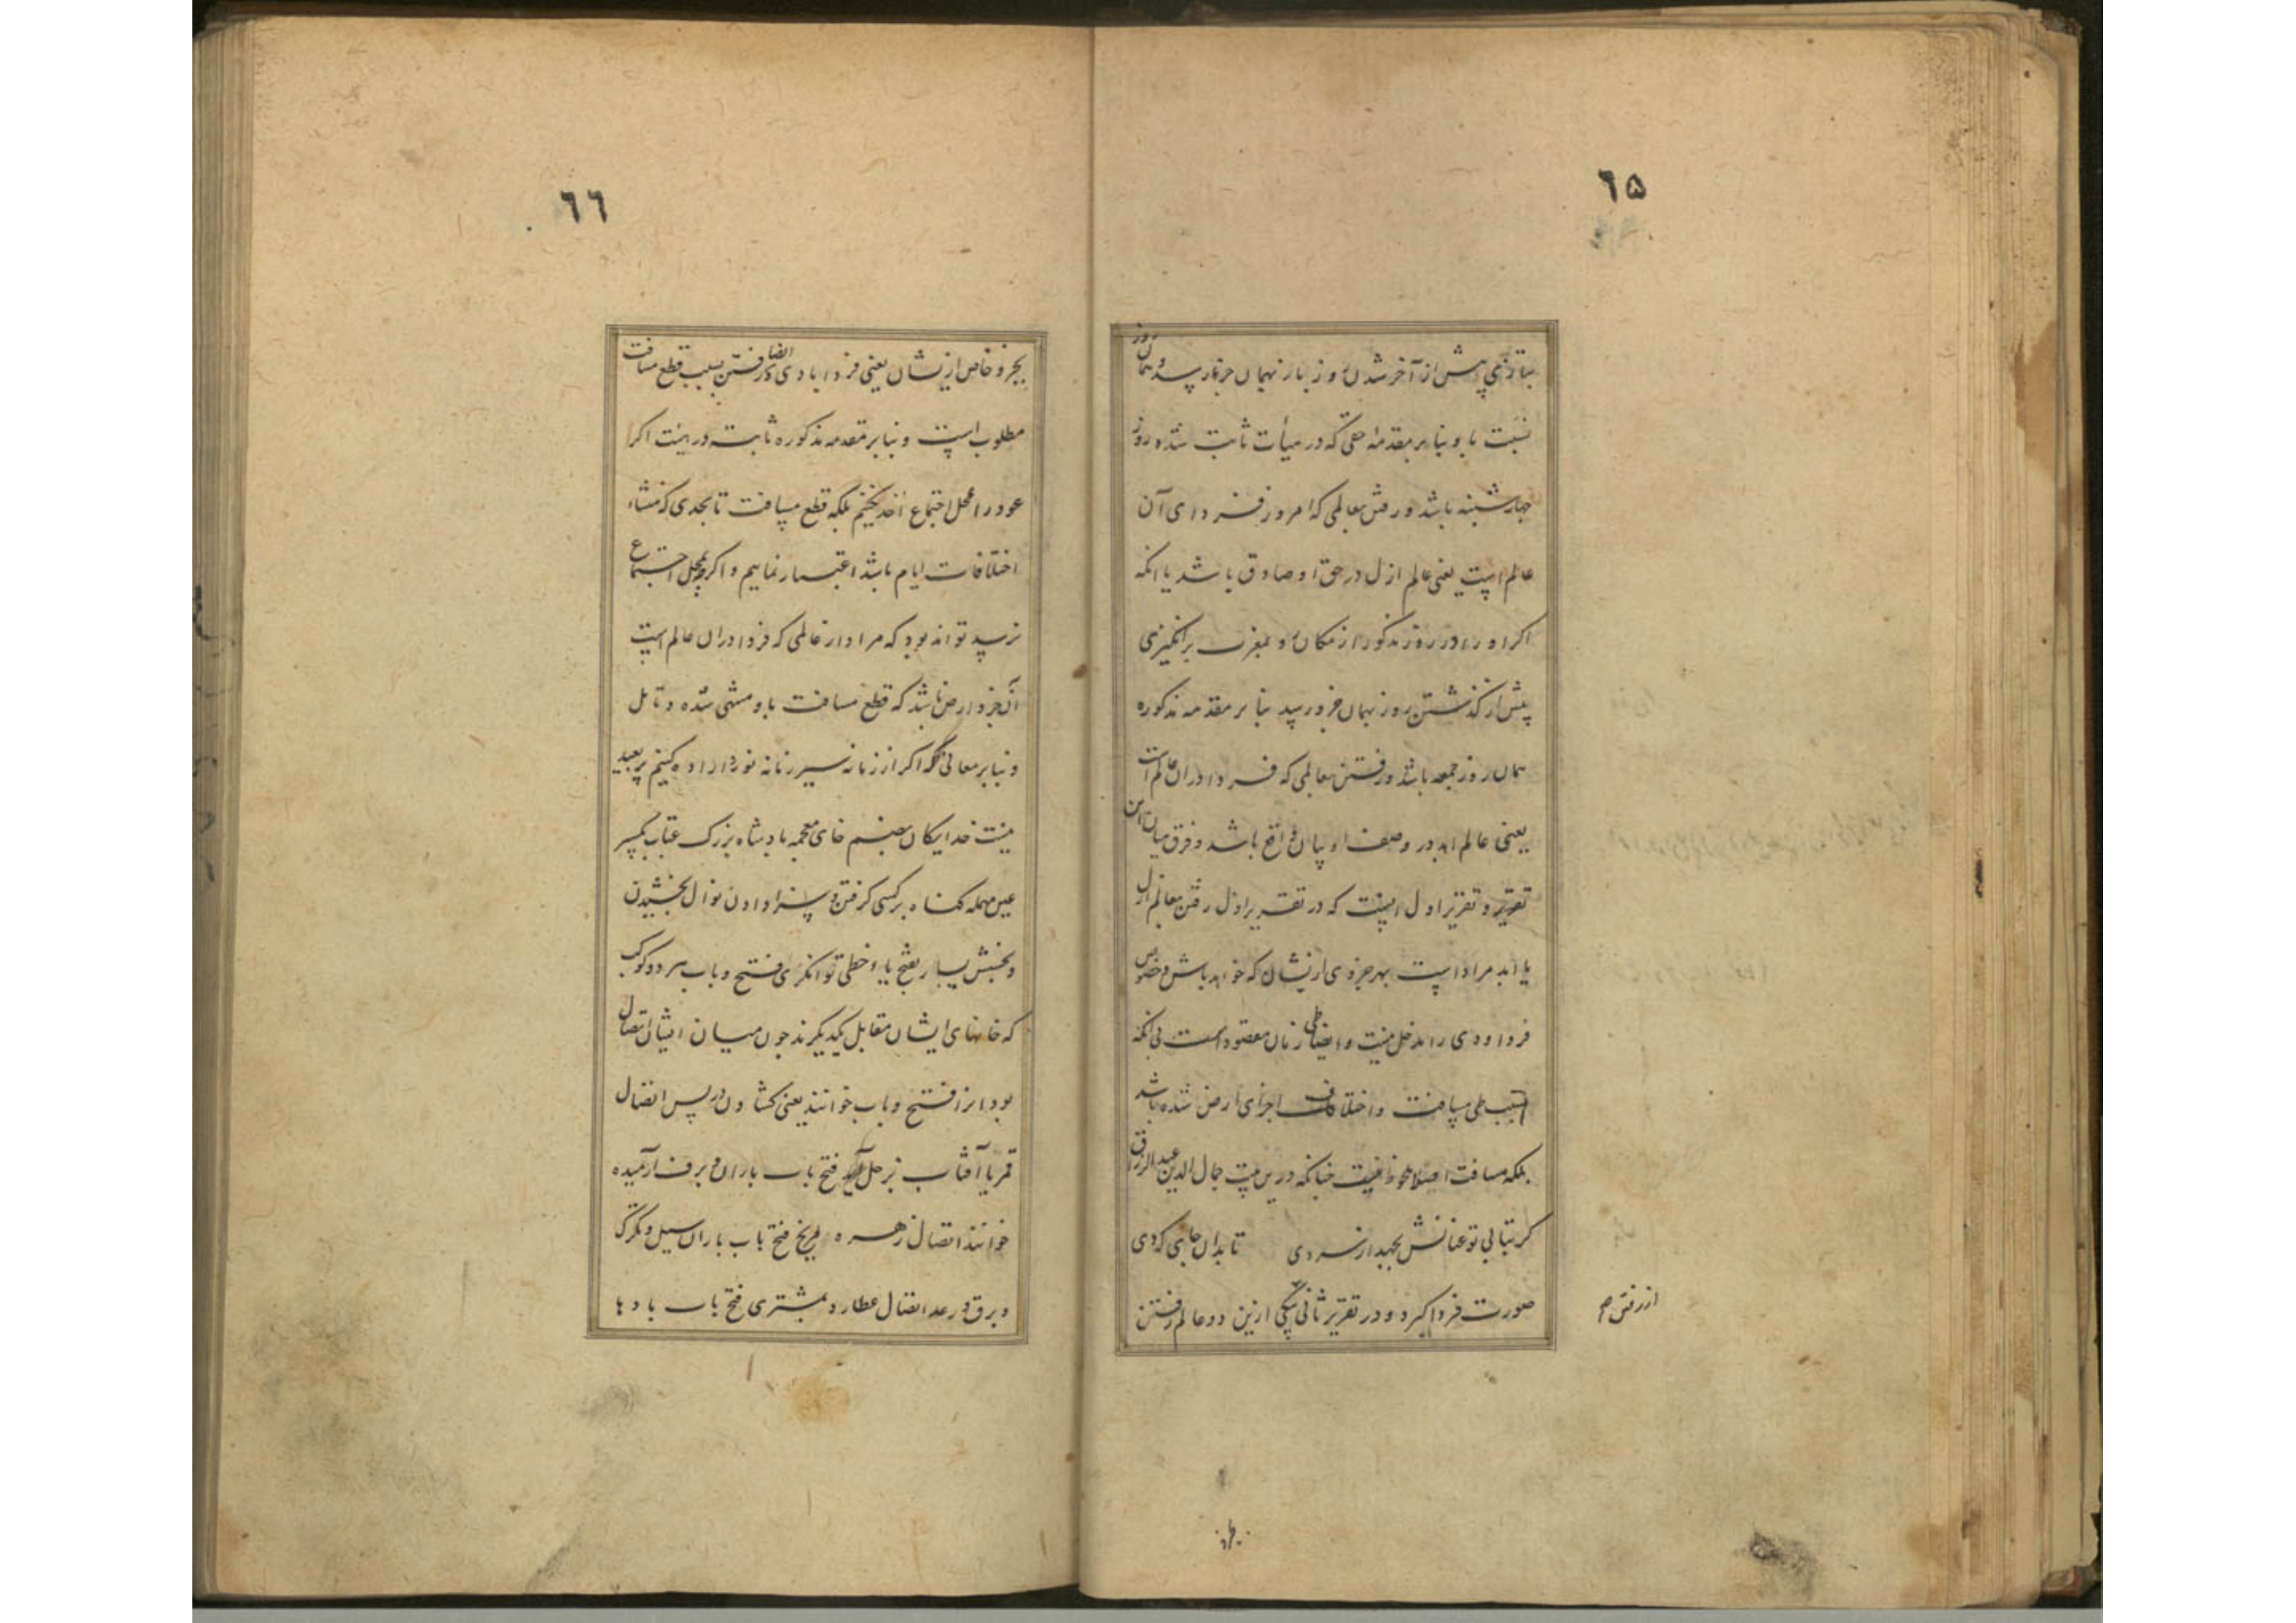 ٦٥
بتازی پیش از آخر شدن روز باز بهمان جزء باز رسد و همان روز
نسبت باو بنابر مقدمه حقی که در هیأت ثابت شده روز
چهارشنبه باشد و رفتن بعالمی که امروز فردای آن
عالم است یعنی عالم ازل در حق او صادق باشد یا انکه
اکر او را در روز مذکور از مکان و بمغرب برانکیزی
پیش از کذشتن روز بهمان جزو رسد بنابر مقدمه مذکوره
همان روز جمعه باشد و رفتن بعالمی که فردا دران عالم است
یعنی عالم ابد در وصف او بیان واقع باشد و فرق میان این
تقریر و تقریر اول اینست که در تقریر اول رفتن بعالم ازل
یا ابد مراد است بهر جزوی ازیشان که خواهد باش و خصوص
فردا و دی را مدخل نیست و ایضا طی زمان مقصود است بی انکه
بسبب طی مسافت و اختلاف اجزای ارض شده باشد
بلکه مسافت اصلا ملحوظ نیست چنانکه درین بیت جمال الدین عبد الرزاق
کر بتابی تو عنانش بجهد از سر دی تا بدان جایی که دی
صورت فردا کیرد و در تقریر ثانی یکی ازین دو عالم رفتن
از رفتن صح
بجزو
٦٦
بجزو خاص ازیشان یعنی فردا یا دی و ایضا در رفتن بسبب قطع مسافت
مطلوب است و بنابر مقدمه مذکوره ثابت در نیت اکر
عود را بمحل اجتماع اخذ نکنیم بلکه قطع مسافت تا بحدی که منشاء
اختلافات ایام باشد اعتبار نماییم و اکر چه بمحل اجتماع
نرسد تواند بود که مراد از عالمی که فردا دران عالم است
آن جزو ارض باشد که قطع مسافت باو منتهی شده و تامل
و بنابر معانی که اکر از زمانه سیر زمانه نورد اراده کنیم پر بعید
نیست خدایکان بضم خای معجمه پادشاه بزرک عتاب بکسر
عین مهمله کناه بر کسی کرفتن و سزا دادن نوال بخشیدن
و بخشش یسار بفتح یاء حطی توانکری فتح و باب هر دو کوکب
که خانهای ایشان مقابل یکدیکرند چون میان ایشان اتصال
بود انرا فتح و باب خوانند یعنی کشادن در پس اتصال
قمر یا آفتاب بزحل فتح باب باران و برف آرمیده
خوانند اتصال زهره بمریخ فتح باب باران سیل و تکرک
و برق و رعد اتصال عطارد بمشتری فتح باب بادها